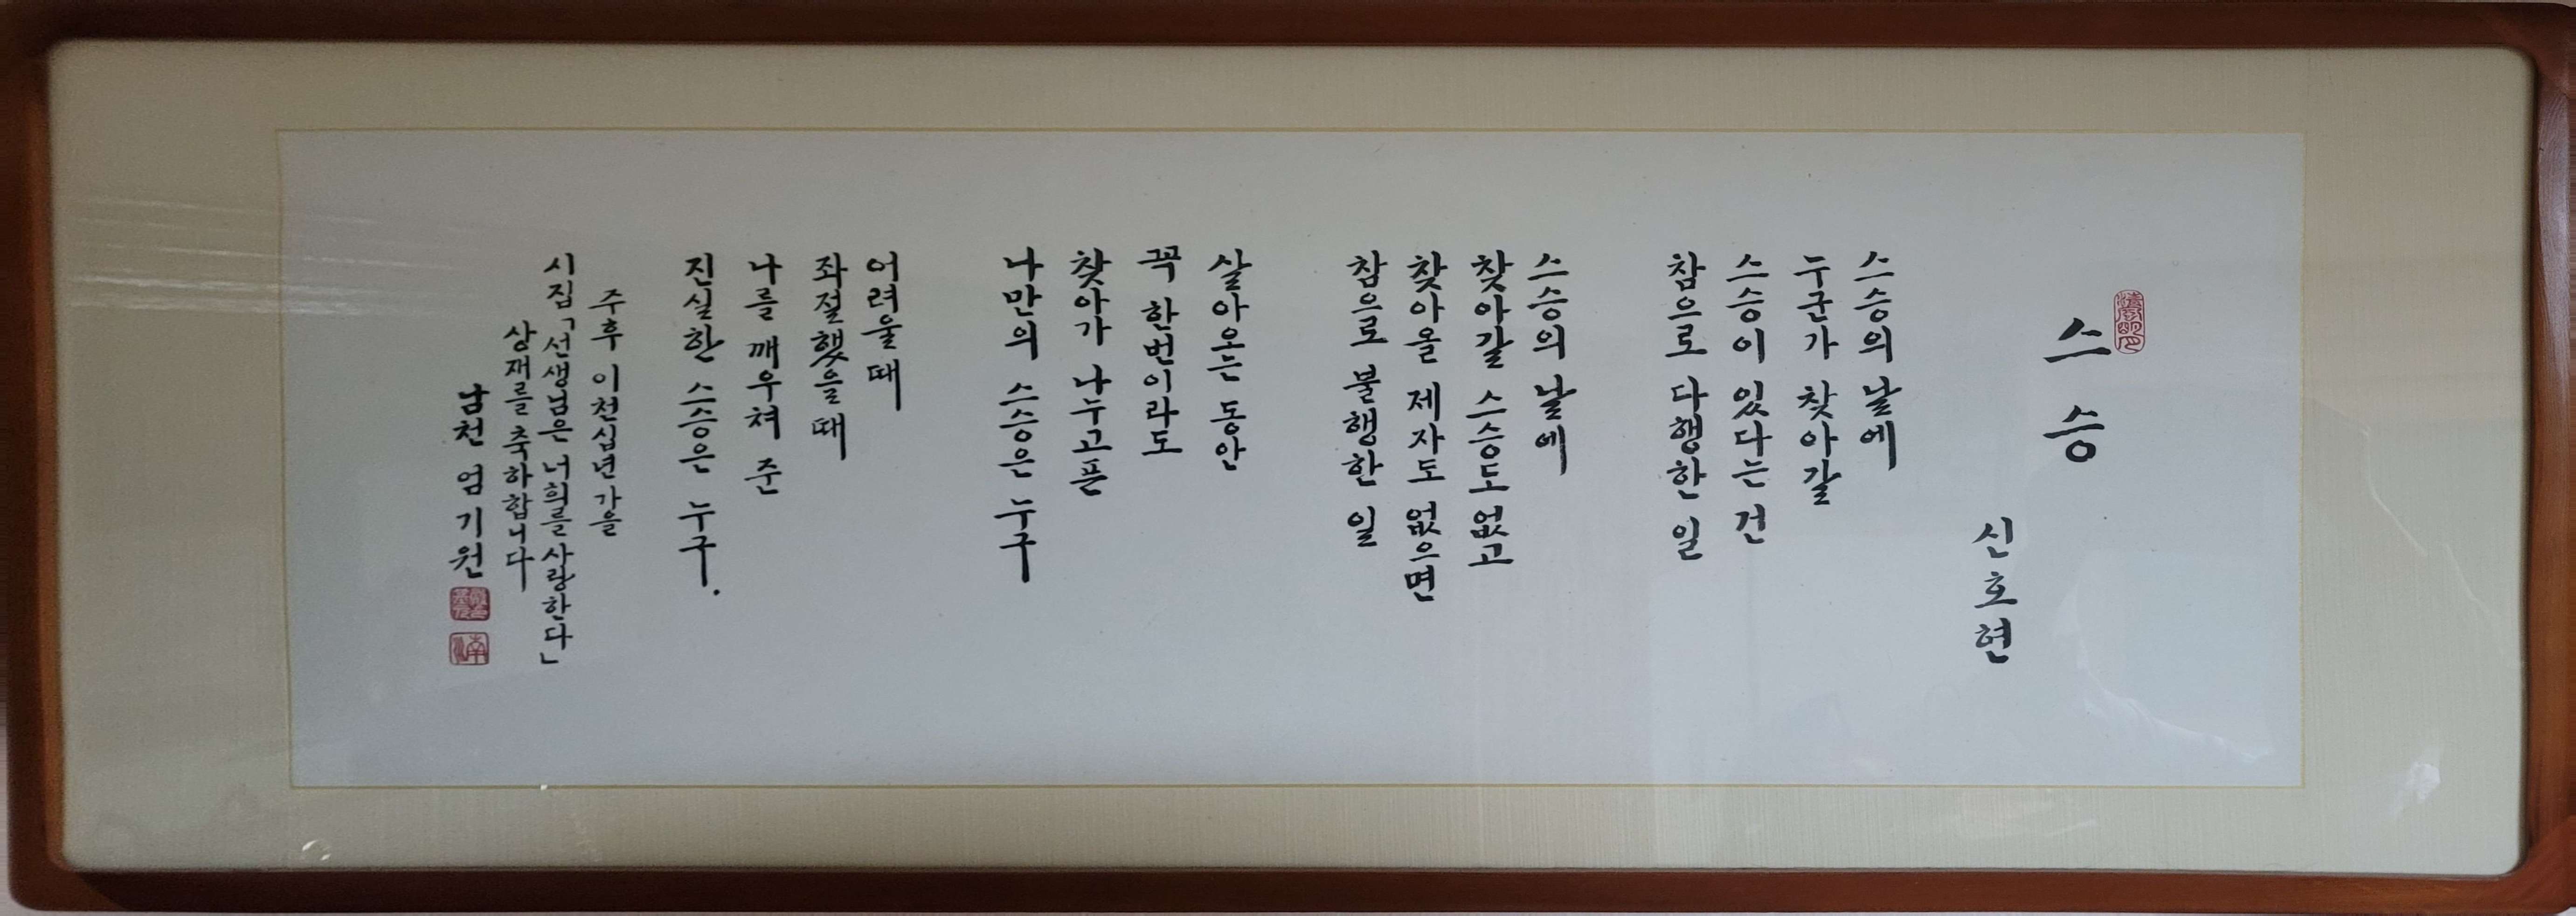 스승
신호현
스승의 날에
누군가 찾아갈
스승이 있다는 건
참으로 다행한 일
스승의 날에
찾아갈 스승도 없고
찾아올 제자도 없으면
참으로 불행한 일
살아오는 동안
꼭 한번이라도
찾아가 나누고픈
나만의 스승은 누구
어려울 때
좌절했을 때
나를 깨우쳐 준
진실한 스승은 누구.
주후 이천십년 가을
시집「선생님은 너희를 사랑한다」
상재를 축하합니다
남천 엄기원